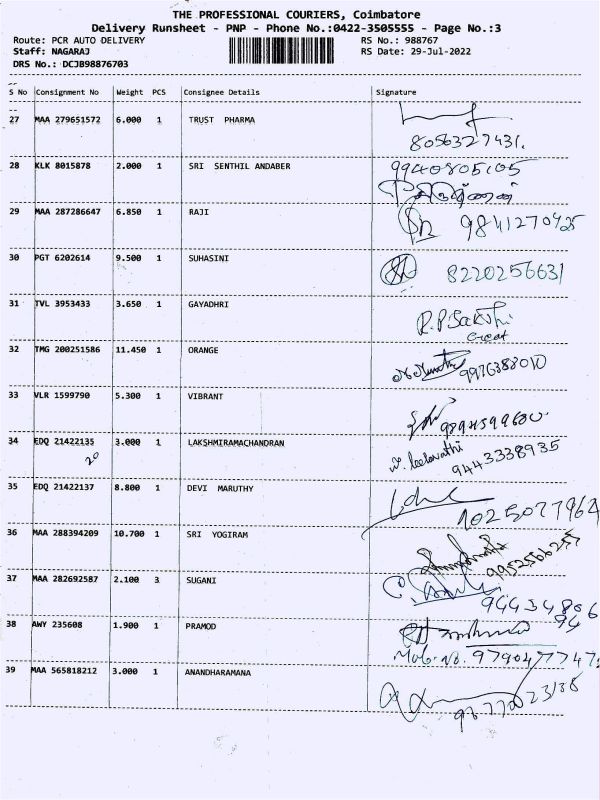 THE PROFESSIONAL COURIERS, Coimbatore
Delivery Runsheet - PNP - Phone No.:0422-3505555 - Page No.:3
Route: PCR AUTO DELIVERY RS No.: 988767
Staff: NAGARAJ RS Date: 29-Jul-2022
DRS No.: DCJB98876703
S No Consignment No Weight PCS Consignee Details Signature
27 MAA 279651572 6.000 1 TRUST PHARMA
8056327431.
28 KLK 8015878 2.000 1 SRI SENTHIL ANDABER 9940805105
29 MAA 287286647 6.850 1 RAJI 9841270925
30 PGT 6202614 9.500 1 SUHASINI 8220256631
31 TVL 3953433 3.650 1 GAYADHRI R.P Sakthi
32 TMG 200251586 11.450 1 ORANGE 9976388010
33 VLR 1599790 5.300 1 VIBRANT 9894599600
34 EDQ 21422135 3.000 1 LAKSHMIRAMACHANDRAN
20 leelavathi 9443338935
35 EDQ 21422137 8.800 1 DEVI MARUTHY
36 MAA 288394209 10.700 1 SRI YOGIRAM 9952566257
37 MAA 282692587 2.100 3 SUGANI
94434806
94
38 AWY 235608 1.900 1 PRAMOD
Mob. No. 979047747
39 MAA 565818212 3.000 1 ANANDHARAMANA